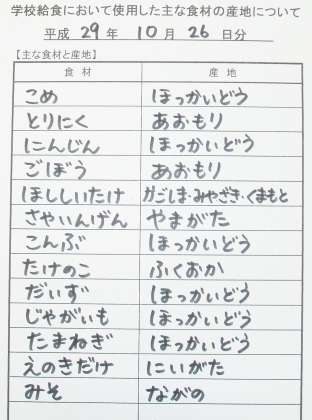 学校給食において使用した主な食材の産地について
平成 29 年 10 月 26 日分
【主な食材と産地】
食材 産地
こめ ほっかいどう
とりにく あおもり
にんじん ほっかいどう
ごぼう あおもり
ほししいたけ かごしま・みやざき・くまもと
さやいんげん やまがた
こんぶ ほっかいどう
たけのこ ふくおか
だいず ほっかいどう
じゃがいも ほっかいどう
たまねぎ ほっかいどう
えのきだけ にいがた
みそ ながの